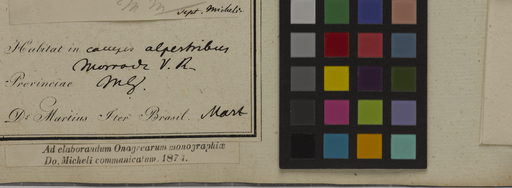 Sept. Micheli
Habitat in campis alpestribus
V. R.
Provinciae
Dr Martius Iter Brasil. Mart
Ad elaborandum Onagrearum monographiæ
Do, Micheli communicatum. 1874.